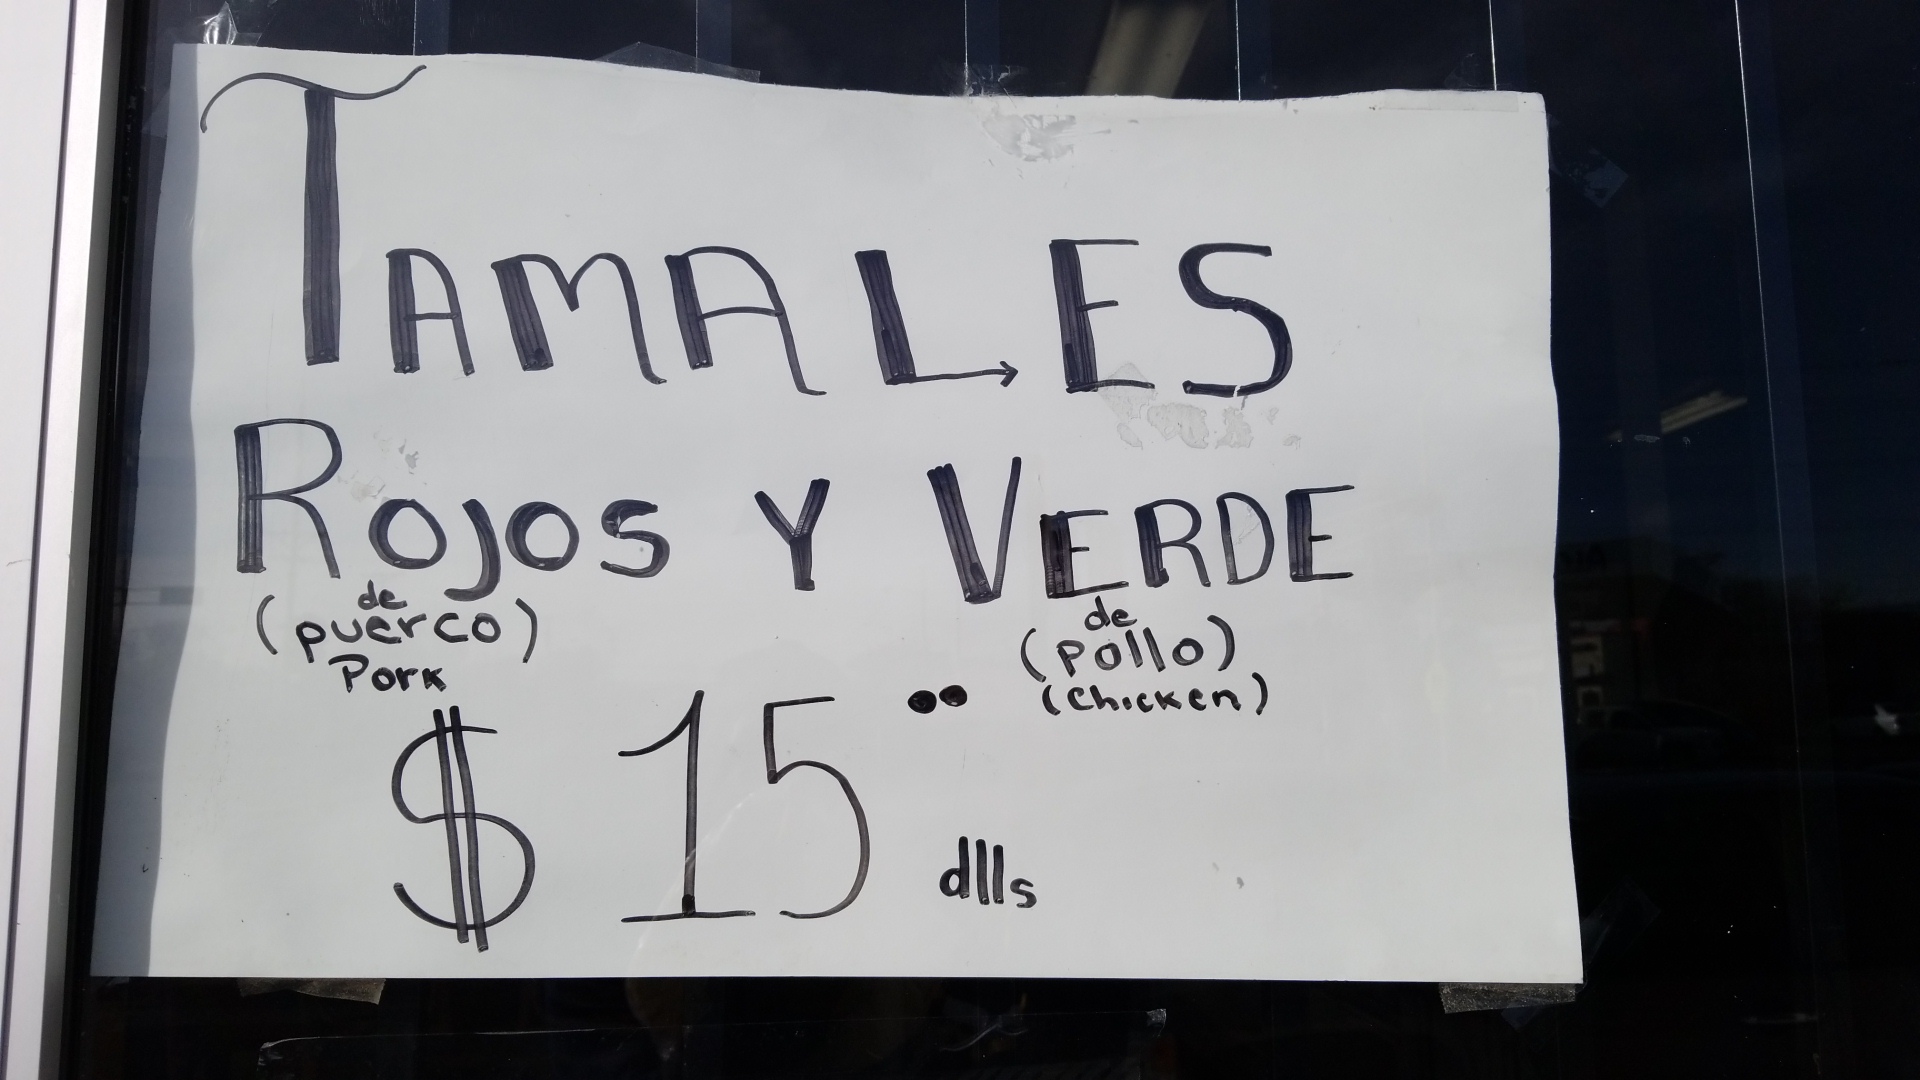 TAMALES
ROJOS Y VERDE
(de puerco) (de pollo)
Pork (Chicken)
$ 15.. dlls